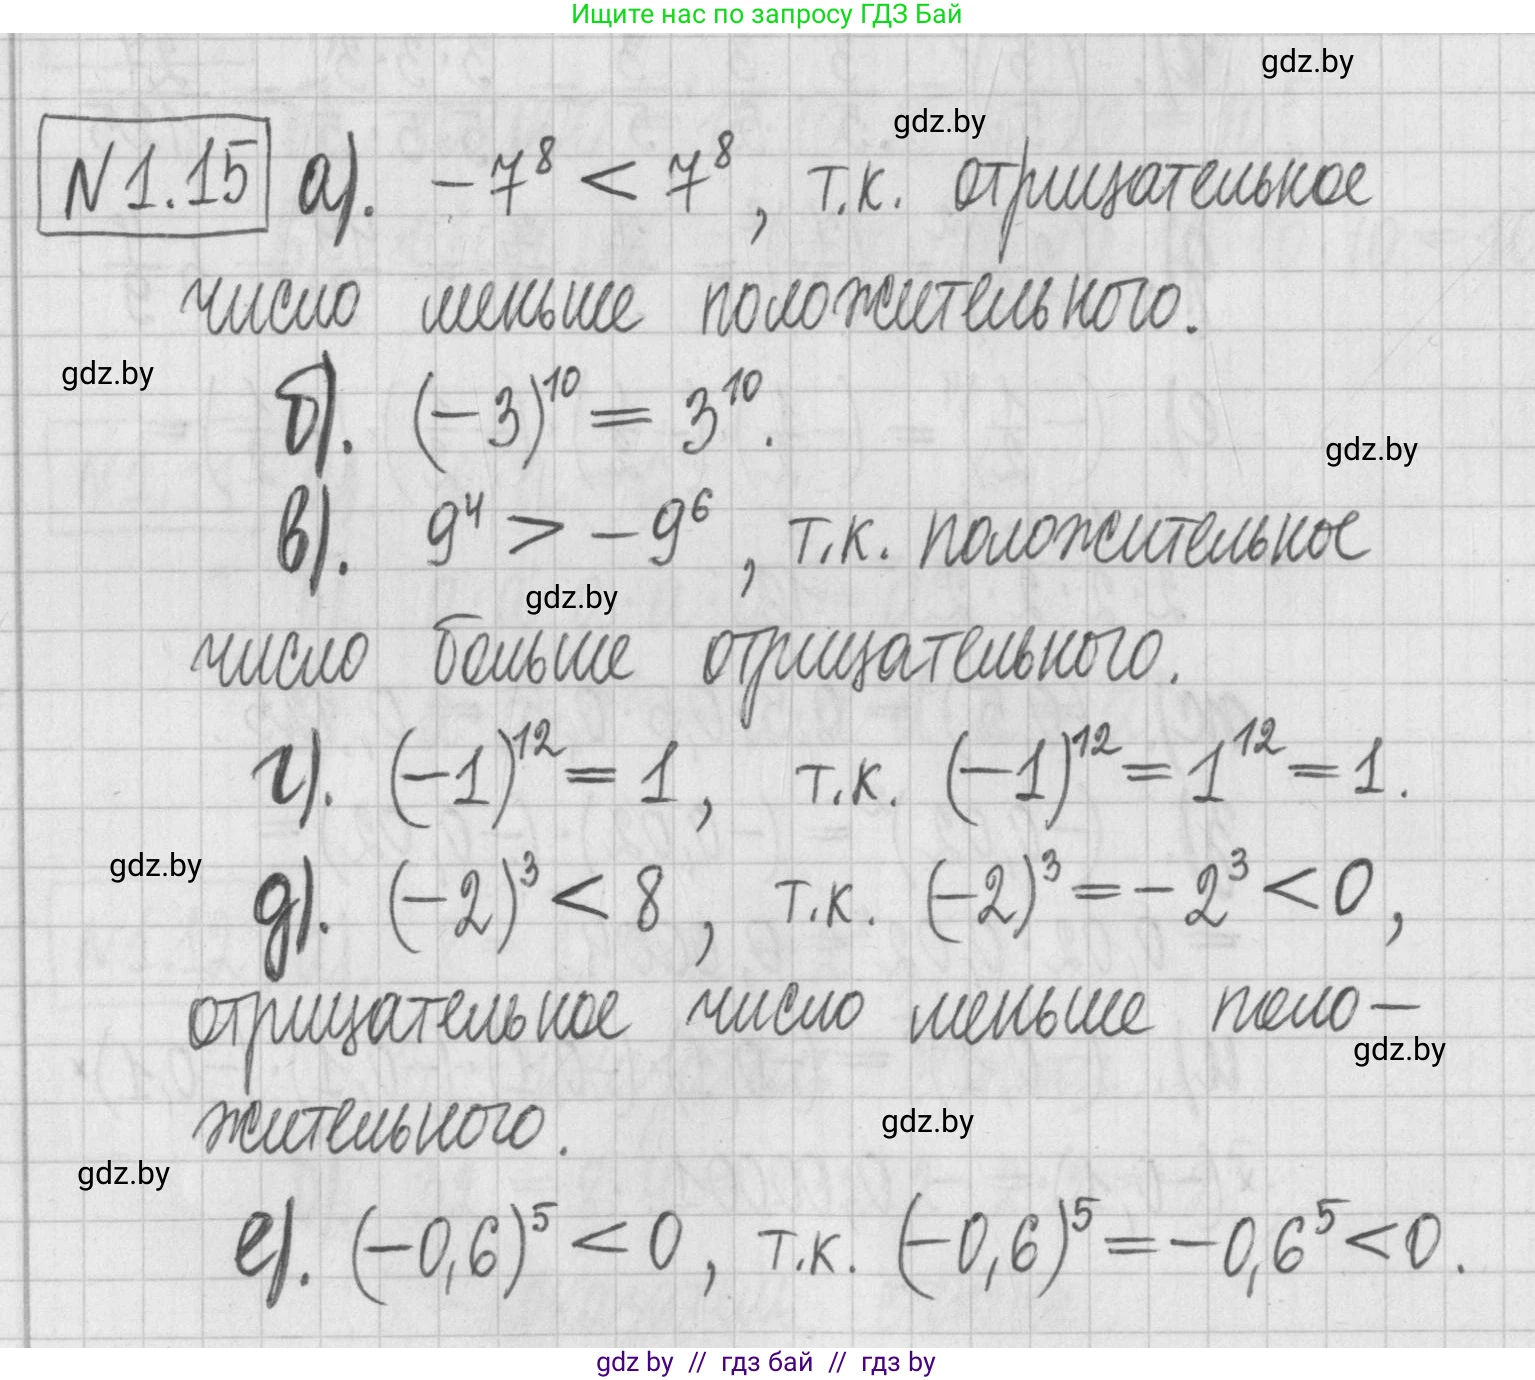 Ищите нас по запросу ГДЗ Бай
gdz.by
gdz.by
N 1.15 а). -7⁸ < 7⁸, т.к. отрицательное
число меньше положительного.
gdz.by
б). (-3)¹⁰ = 3¹⁰.
gdz.by
в). 9⁴ > -9⁶, т.к. положительное
gdz.by
число больше отрицательного.
г). (-1)¹² = 1, т.к. (-1)¹² = 1¹² = 1.
gdz.by
д). (-2)³ < 8, т.к. (-2)³ = -2³ < 0,
отрицательное число меньше поло-
gdz.by
жительного.
gdz.by
gdz.by
е). (-0,6)⁵ < 0, т.к. (-0,6)⁵ = -0,6⁵ < 0.
gdz by // гдз бай // гдз by